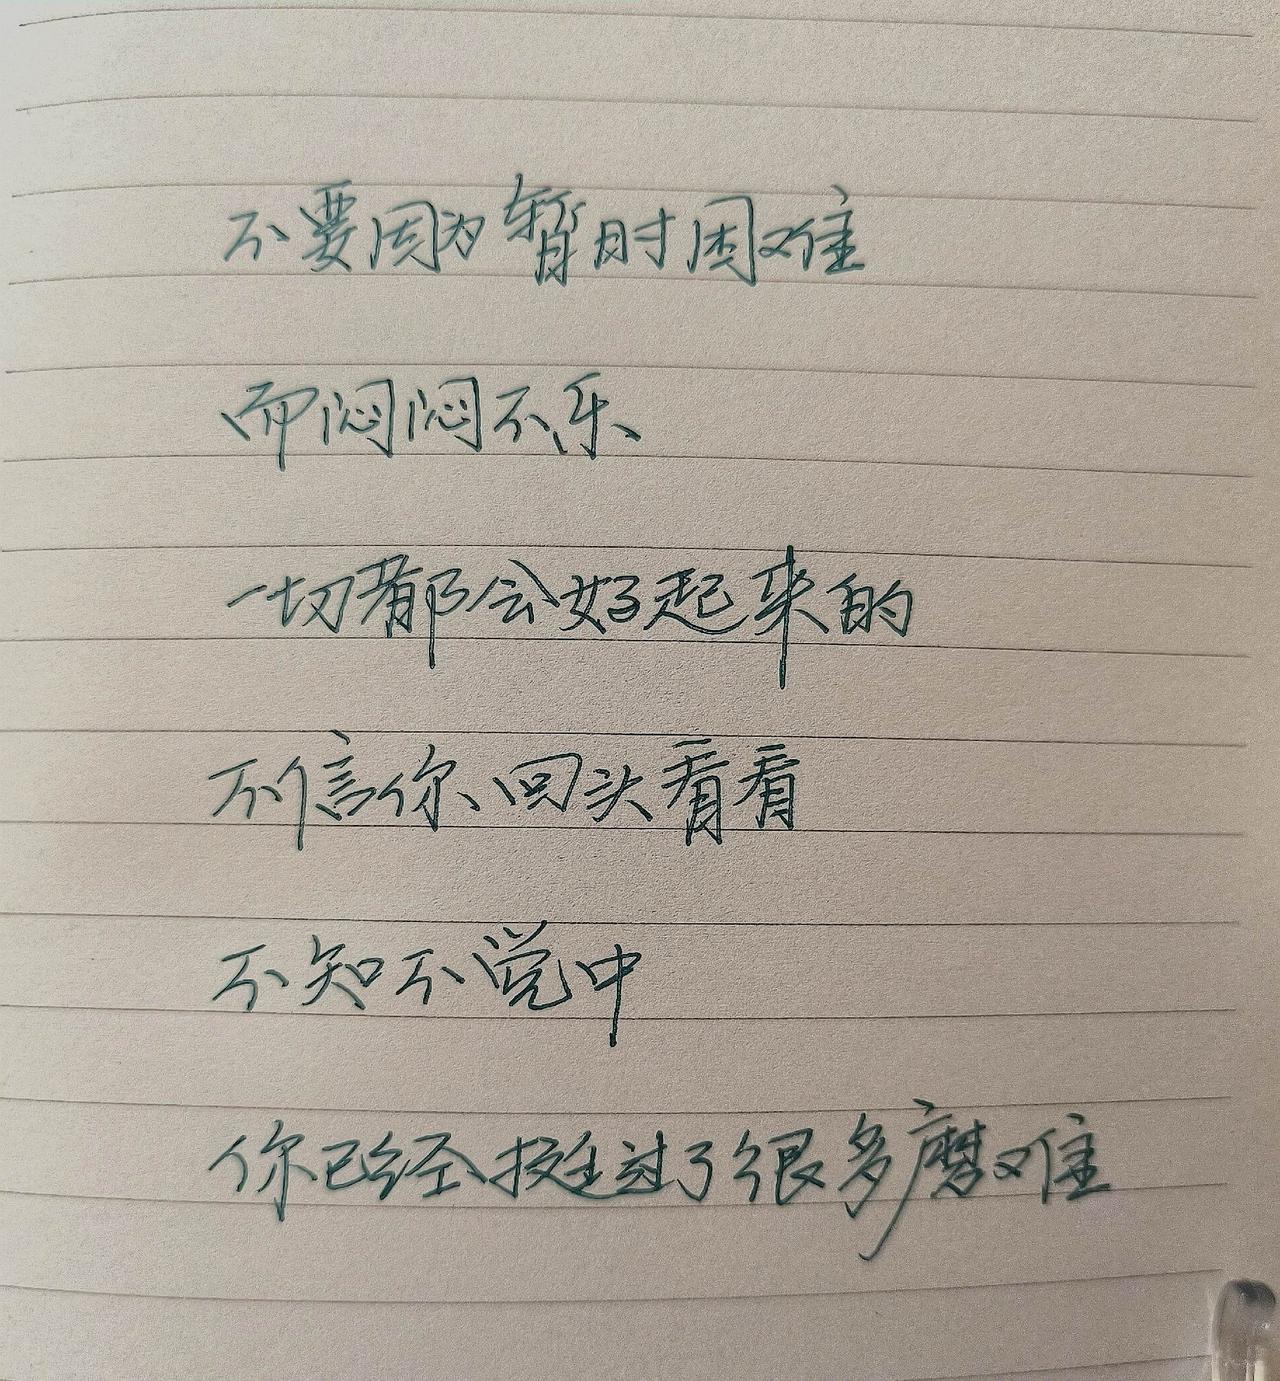 不要因为暂时困难
而闷闷不乐
一切都会好起来的
不信你回头看看
不知不觉中
你已经挺过了很多磨难